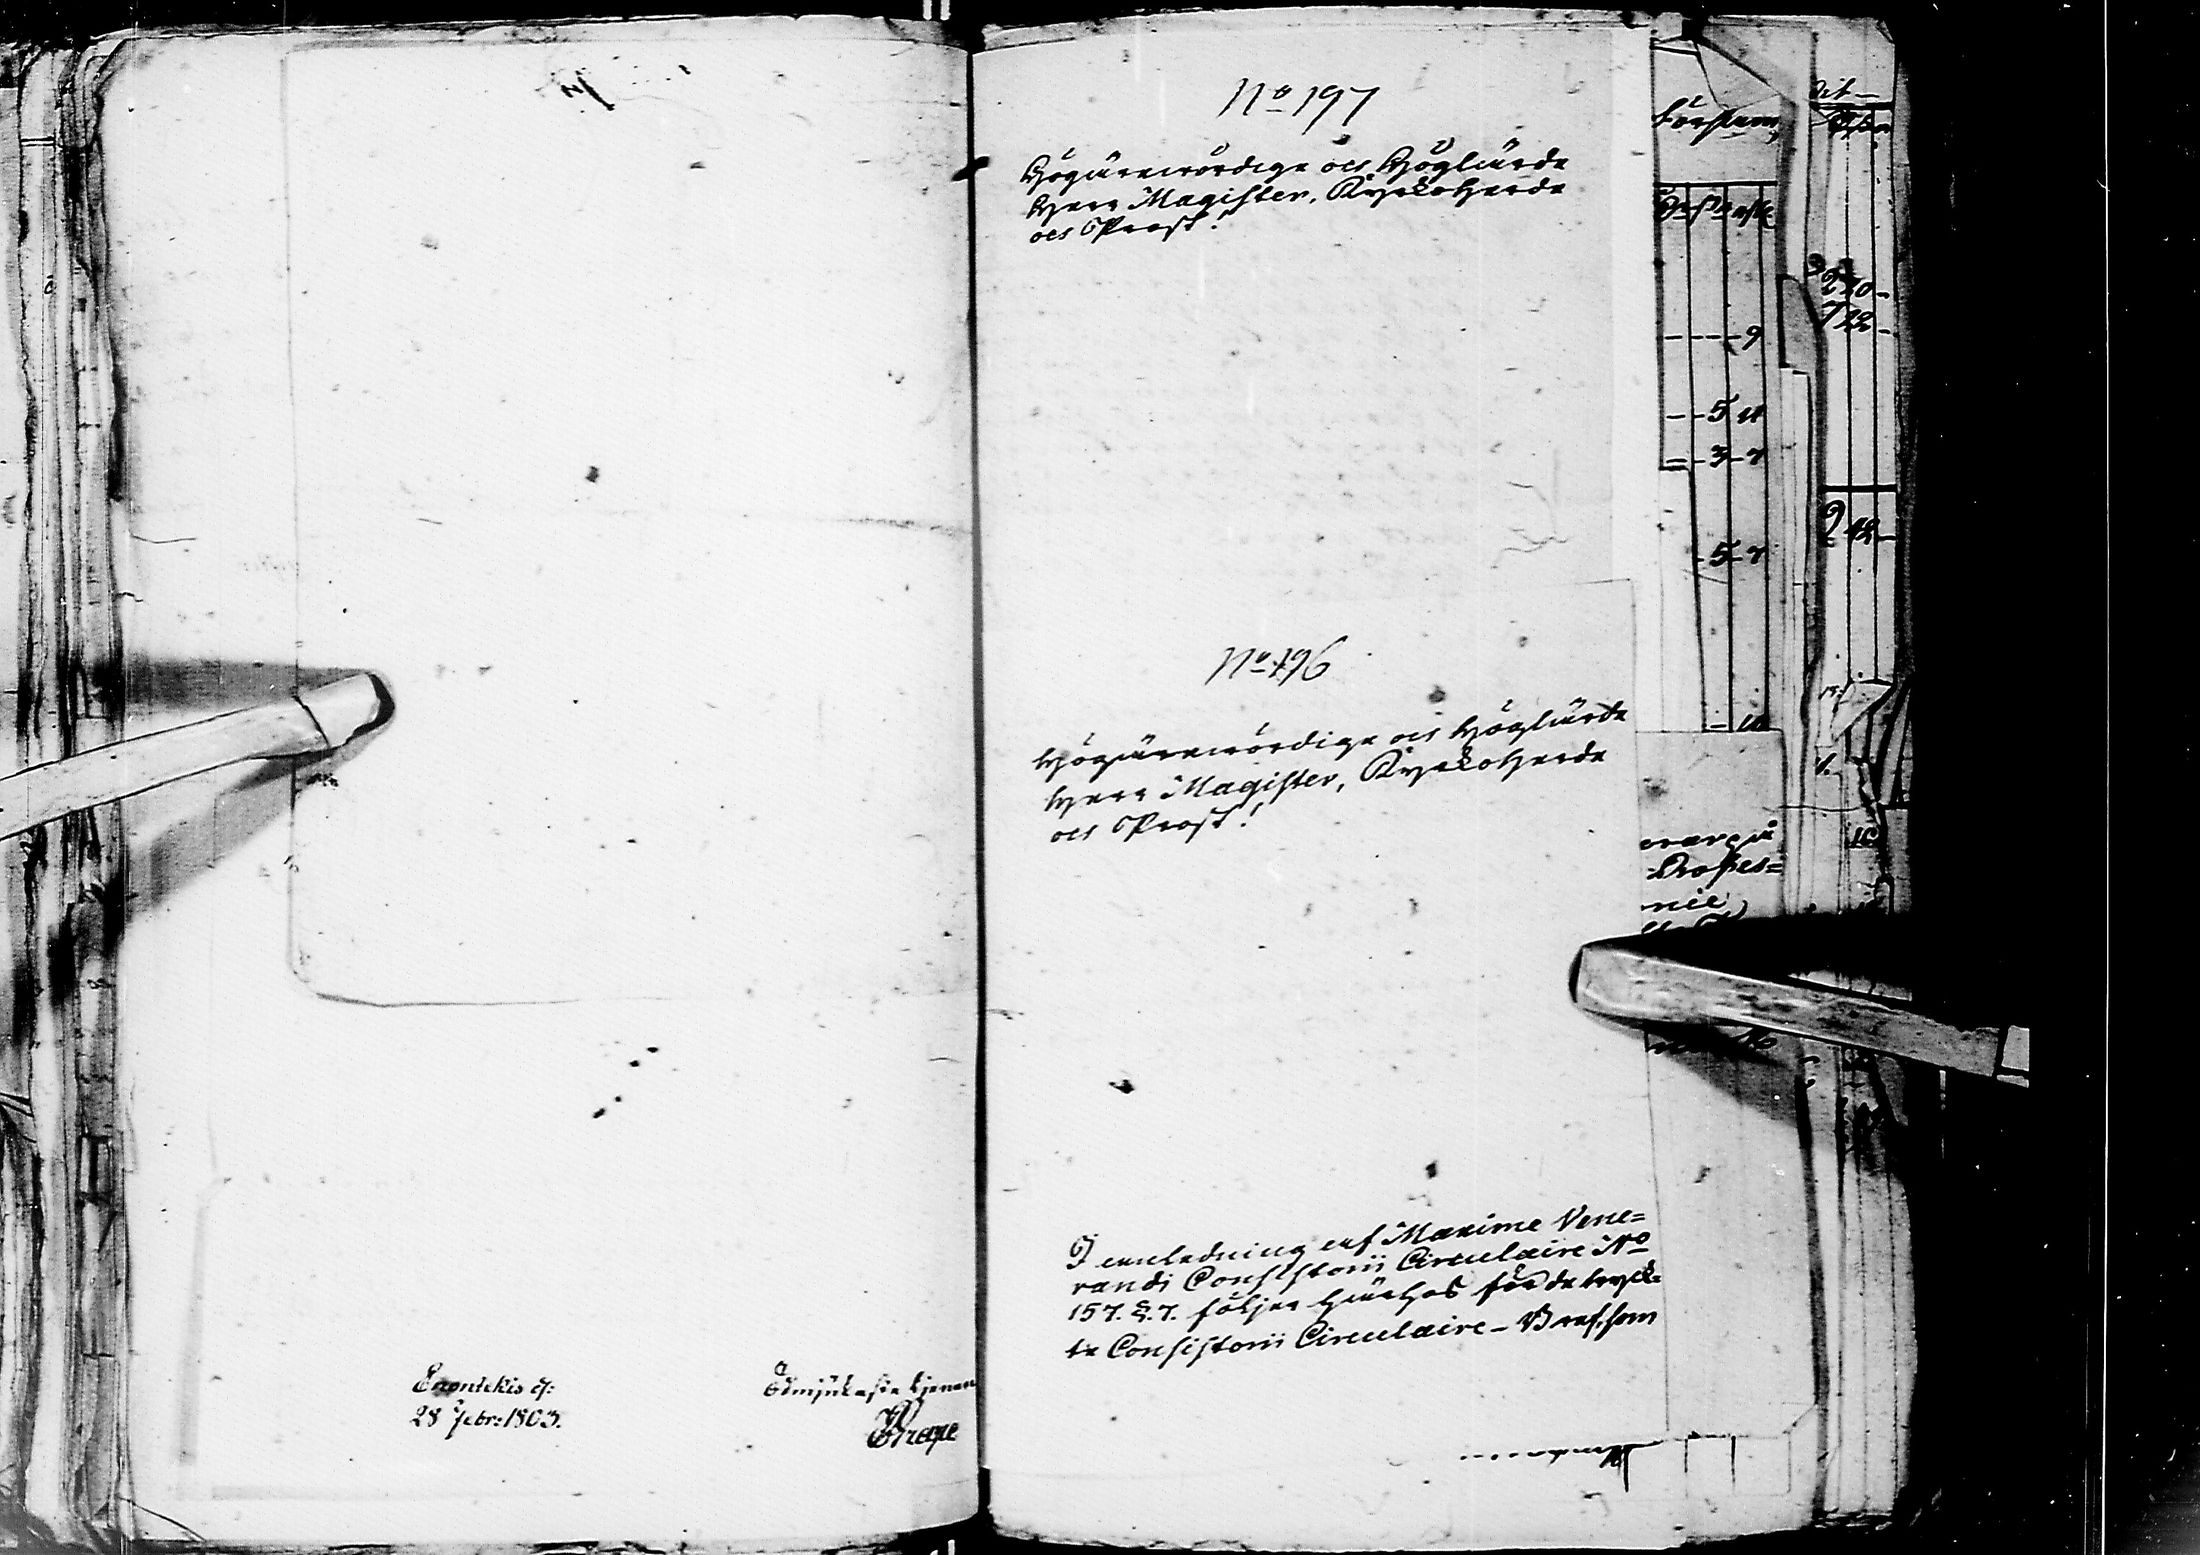 Enontekis d:
28 Febr: 1803.
Ödmjukaste tjenare
Grape
No 197
Högärewördige och Höglärde
Herr Magister, Kyrkoherde
och Prost!
No 196
Högärewördige och Höglärde
Herr Magister, Kyrkoherde
och Prost!
I anledning af Maxime Vene=
randi Consistorii Circulaire No
157. §. 7. följer härhos före de tryck=
te Consistorii Circulaire-Bref, som
9
5
3 7
5 7
242